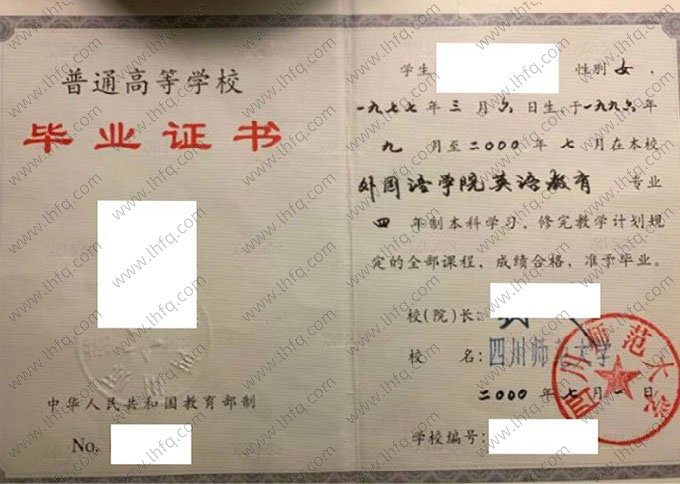 普通高等学校
毕业证书
中华人民共和国教育部制
No.
学生 性别 女 ,
一九七七年三月六日生,于一九九六年
九月至二〇〇〇年七月在本校
外国语学院英语教育 专业
四年制本科学习,修完教学计划规
定的全部课程,成绩合格,准予毕业。
校(院)长:
校 名: 四川师范大学
二〇〇〇年七月一日
学校编号:
四川师范大学
www.lhfq.com